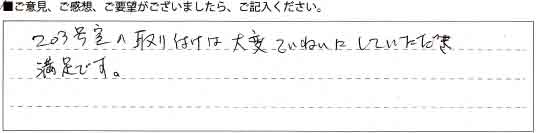 ■ご意見、ご感想、ご要望がございましたら、ご記入ください。
203号室の取り付けは大変ていねいにしていただき
満足です。